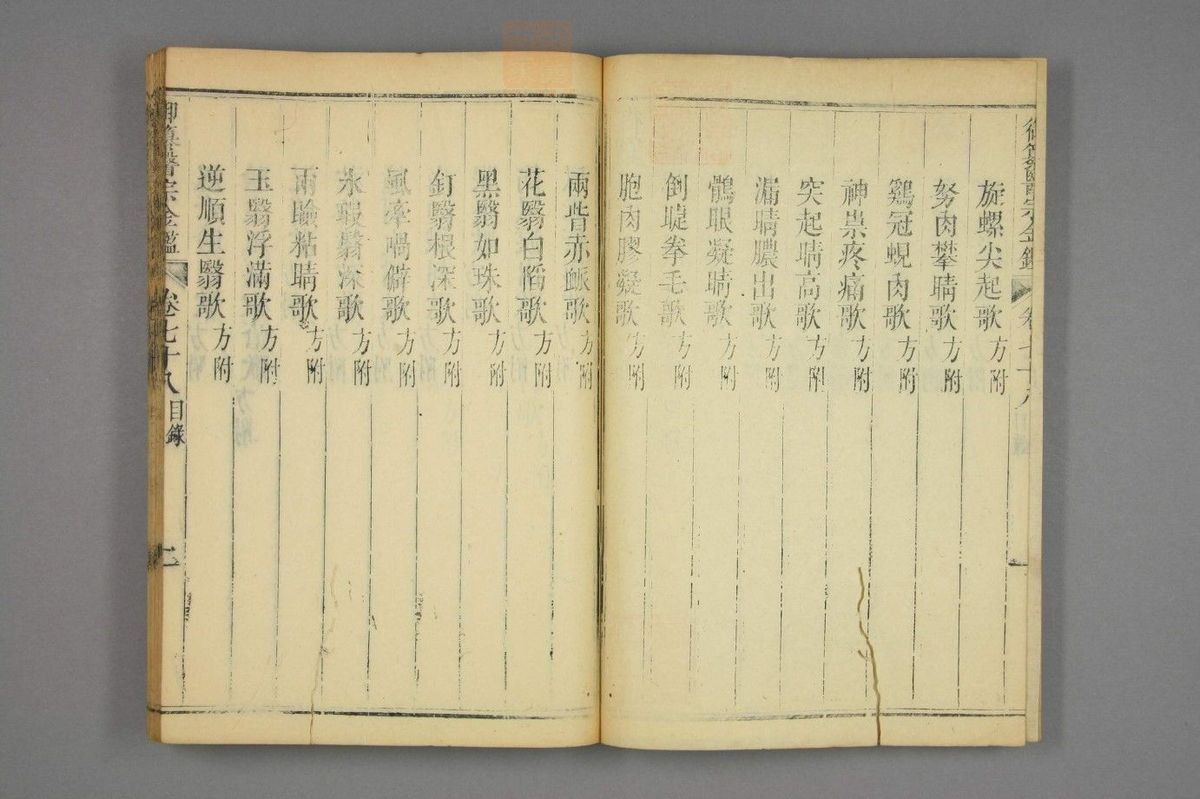 旋螺尖起歌方附
努肉攀睛歌方附
鷄冠蜆肉歌方附
神祟疼痛歌方附
突起睛高歌方附
漏睛膿出歌方附
鶻眼凝睛歌方附
倒睫拳毛歌方附
胞肉膠凝歌方附
兩眥赤䘑歌方附
花翳白陷歌方附
黑翳如珠歌方附
釘翳根深歌方附
風牽喎僻歌方附
氷瑕翳深歌方附
兩瞼粘睛歌方附
玉翳浮滿歌方附
逆順生翳歌方附
御纂醫宗金鑑 卷七十八 目錄